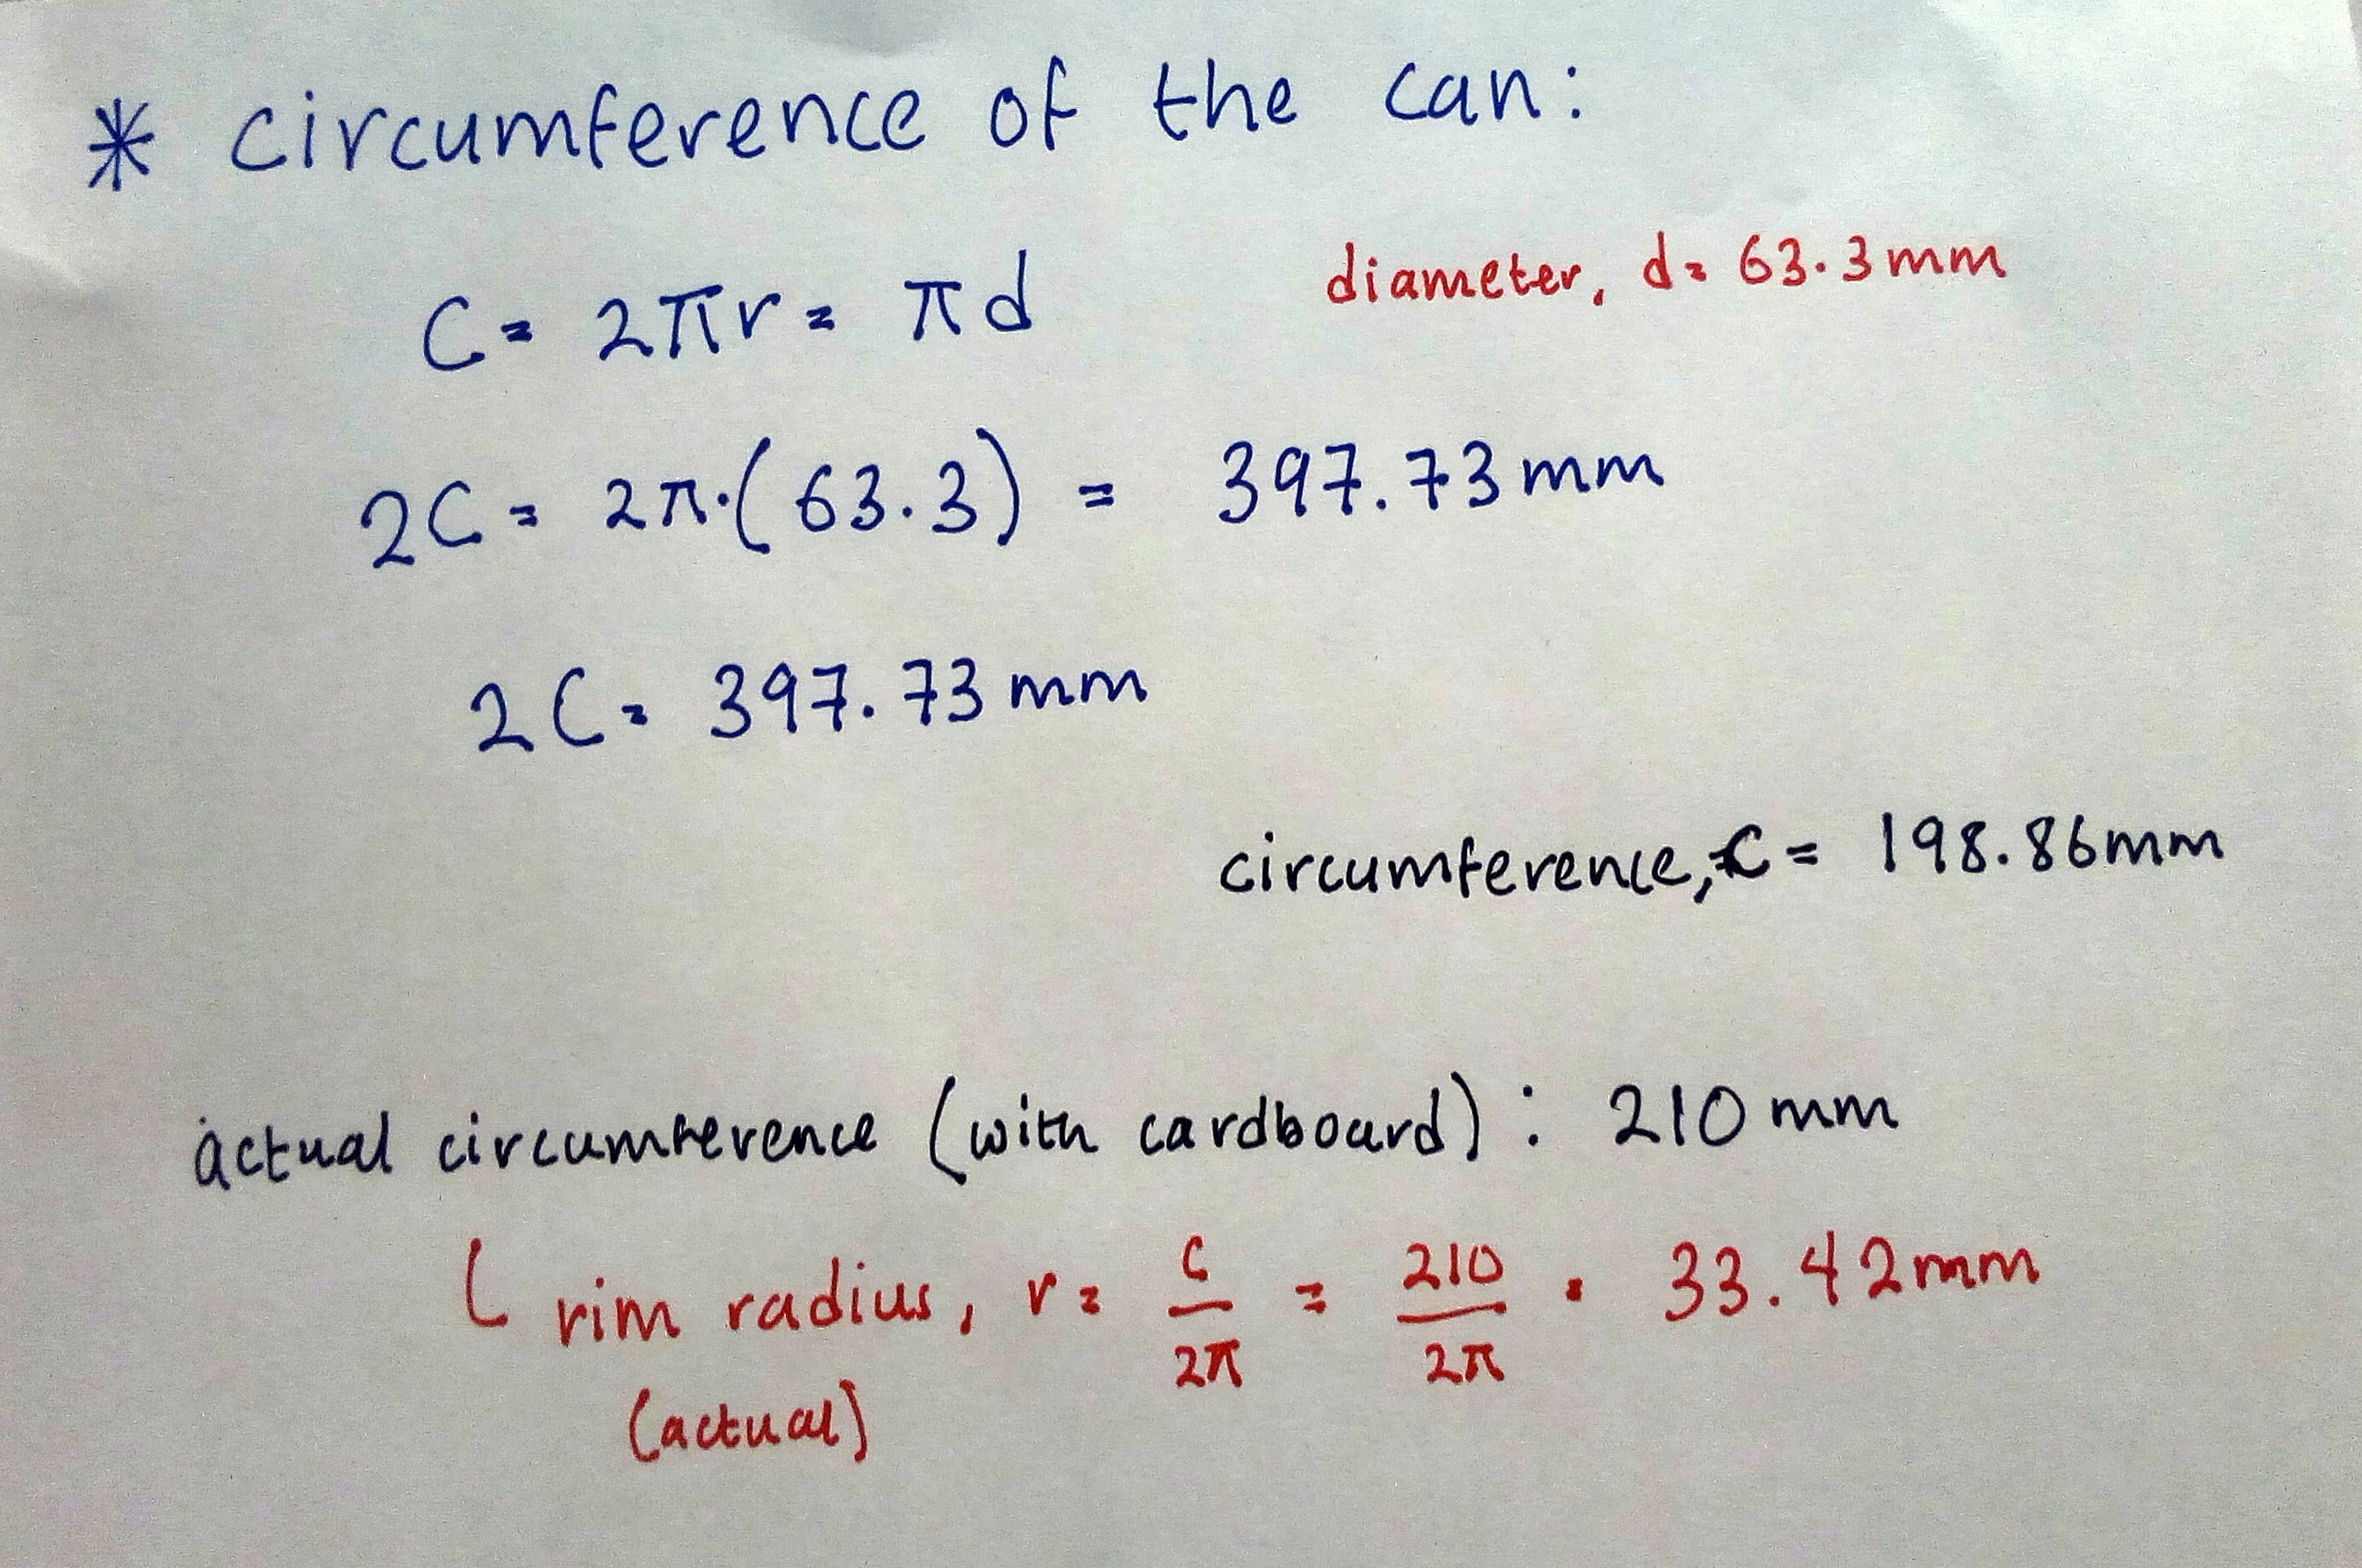 * circumference of the can:
C = 2πr = πd
diameter, d = 63.3mm
2C = 2π·(63.3) = 397.73mm
2C = 397.73mm
circumference, C = 198.86mm
actual circumference (with cardboard): 210mm
rim radius, r = C/2π = 210/2π = 33.42mm
(actual)